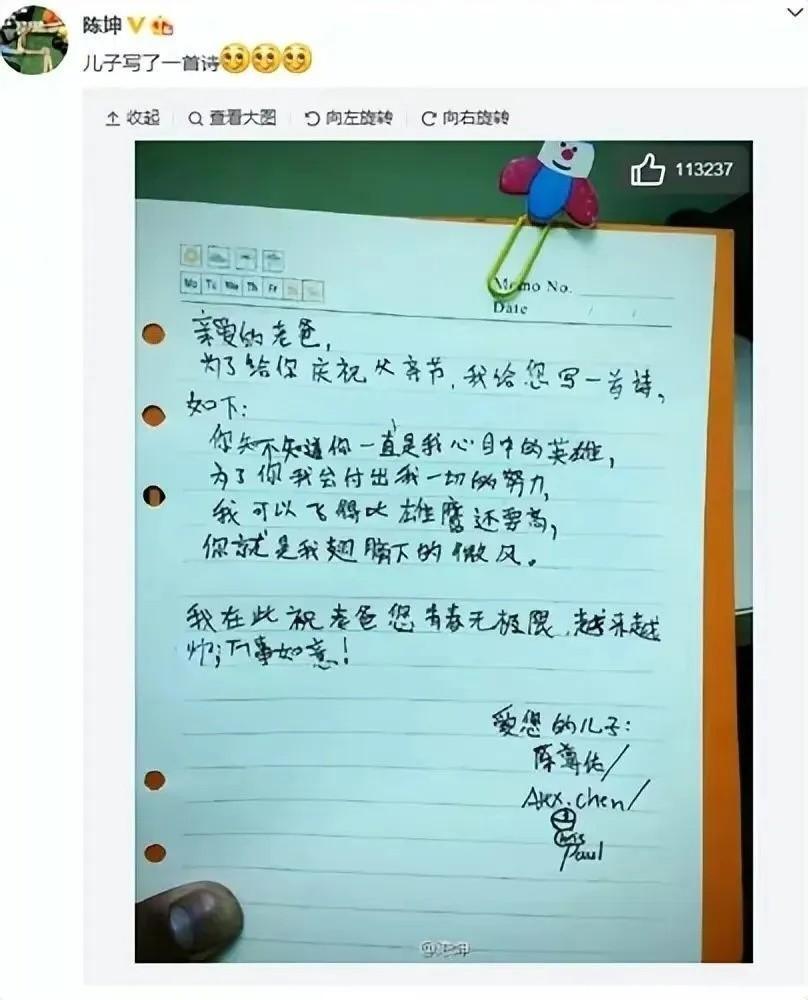 陈坤
儿子写了一首诗
收起 查看大图 向左旋转 向右旋转
113237
Mo Tu We Th Fr
Memo No.
Date / /
亲爱的老爸,
为了给你庆祝父亲节,我给您写一首诗,
如下:
你知不知道你一直是我心目中的英雄,
为了你我会付出我一切的努力,
我可以飞得比雄鹰还要高,
你就是我翅膀下的微风。
我在此祝老爸您青春无极限,越来越
帅;万事如意!
爱您的儿子:
陈尊佑/
Alex.chen/
Chris
Paul
@陈坤